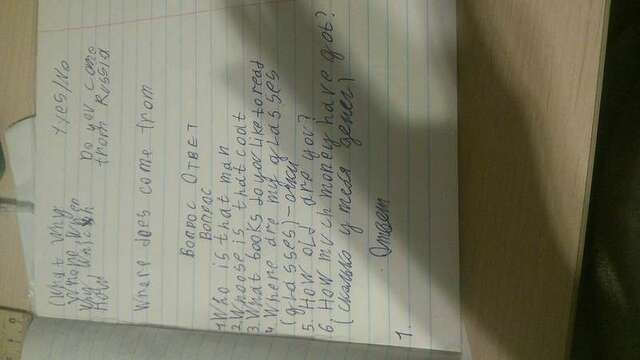 (What Why
Where When
Why, Which
How
Yyes/No
Do you come
from Russia
Where does come from
Вопрос Ответ
Вопрос
1. Who is that man
2. Whoose is that coat
3. What books do you like to read
4. Where are my glasses
(glasses) - очки
5. How old are you?
6. How much money have got?
(сколько у тебя денег)
Ответ
1.